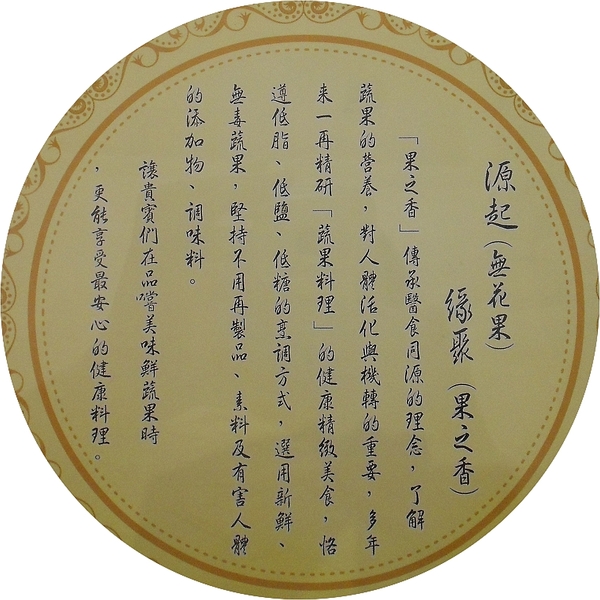 源起（無花果）
緣聚（果之香）
「果之香」傳承醫食同源的理念，了解
蔬果的營養，對人體活化與機轉的重要，多年
來一再精研「蔬果料理」的健康精緻美食，恪
遵低脂、低鹽、低糖的烹調方式，選用新鮮、
無毒蔬果，堅持不用再製品、素料及有害人體
的添加物、調味料。
讓貴賓們在品嚐美味鮮蔬果時
，更能享受最安心的健康料理。